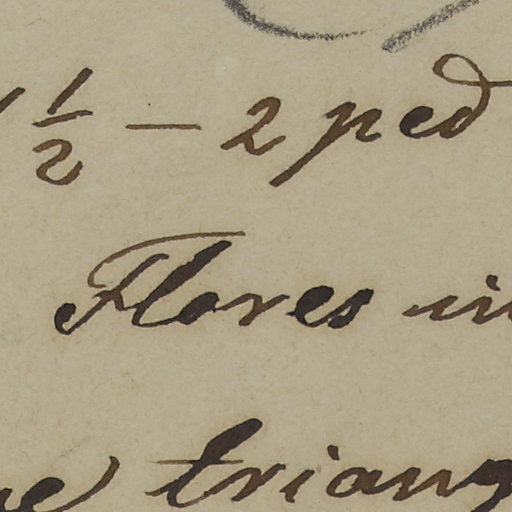 1/2 – 2 ped
Flores in
triang